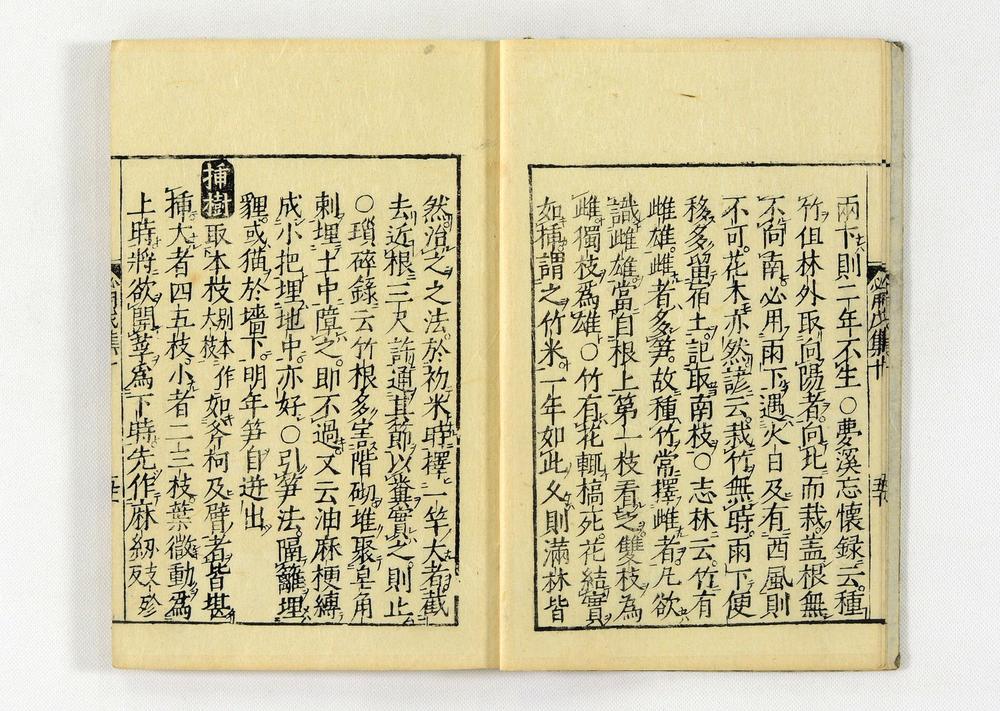 兩下則二年不生○夢溪忘懷録云種
竹但林外取向陽者向北而栽盖根無
不向南必用雨下遇火日及有西風則
不可花木亦然諺云栽竹無時雨下便
移多留宿土記取南枝○志林云竹有
雌雄雌者多笋故種竹常擇雌者凡欲
識雌雄當自根上第一枝看之雙枝為
雌獨枝為雄○竹有花輒槁死花結實
如稗謂之竹米一年如此久則滿林皆
然治之之法於初米時擇一竿大者截
去近根三尺許通其節以糞實之則止
○瑣碎録云竹根多穿害階砌堆聚皂角
刺埋土中障之即不過又云油麻梗縛
成小把埋地中亦好○引笋法隔籬埋
貍或猫於墻下明年笋自迸出
挿樹 取本枝別本作大枝如斧柯及臂者皆堪
挿大者四五枝小者二三枝葉微動為
上時將欲開莩為下時先作麻紉